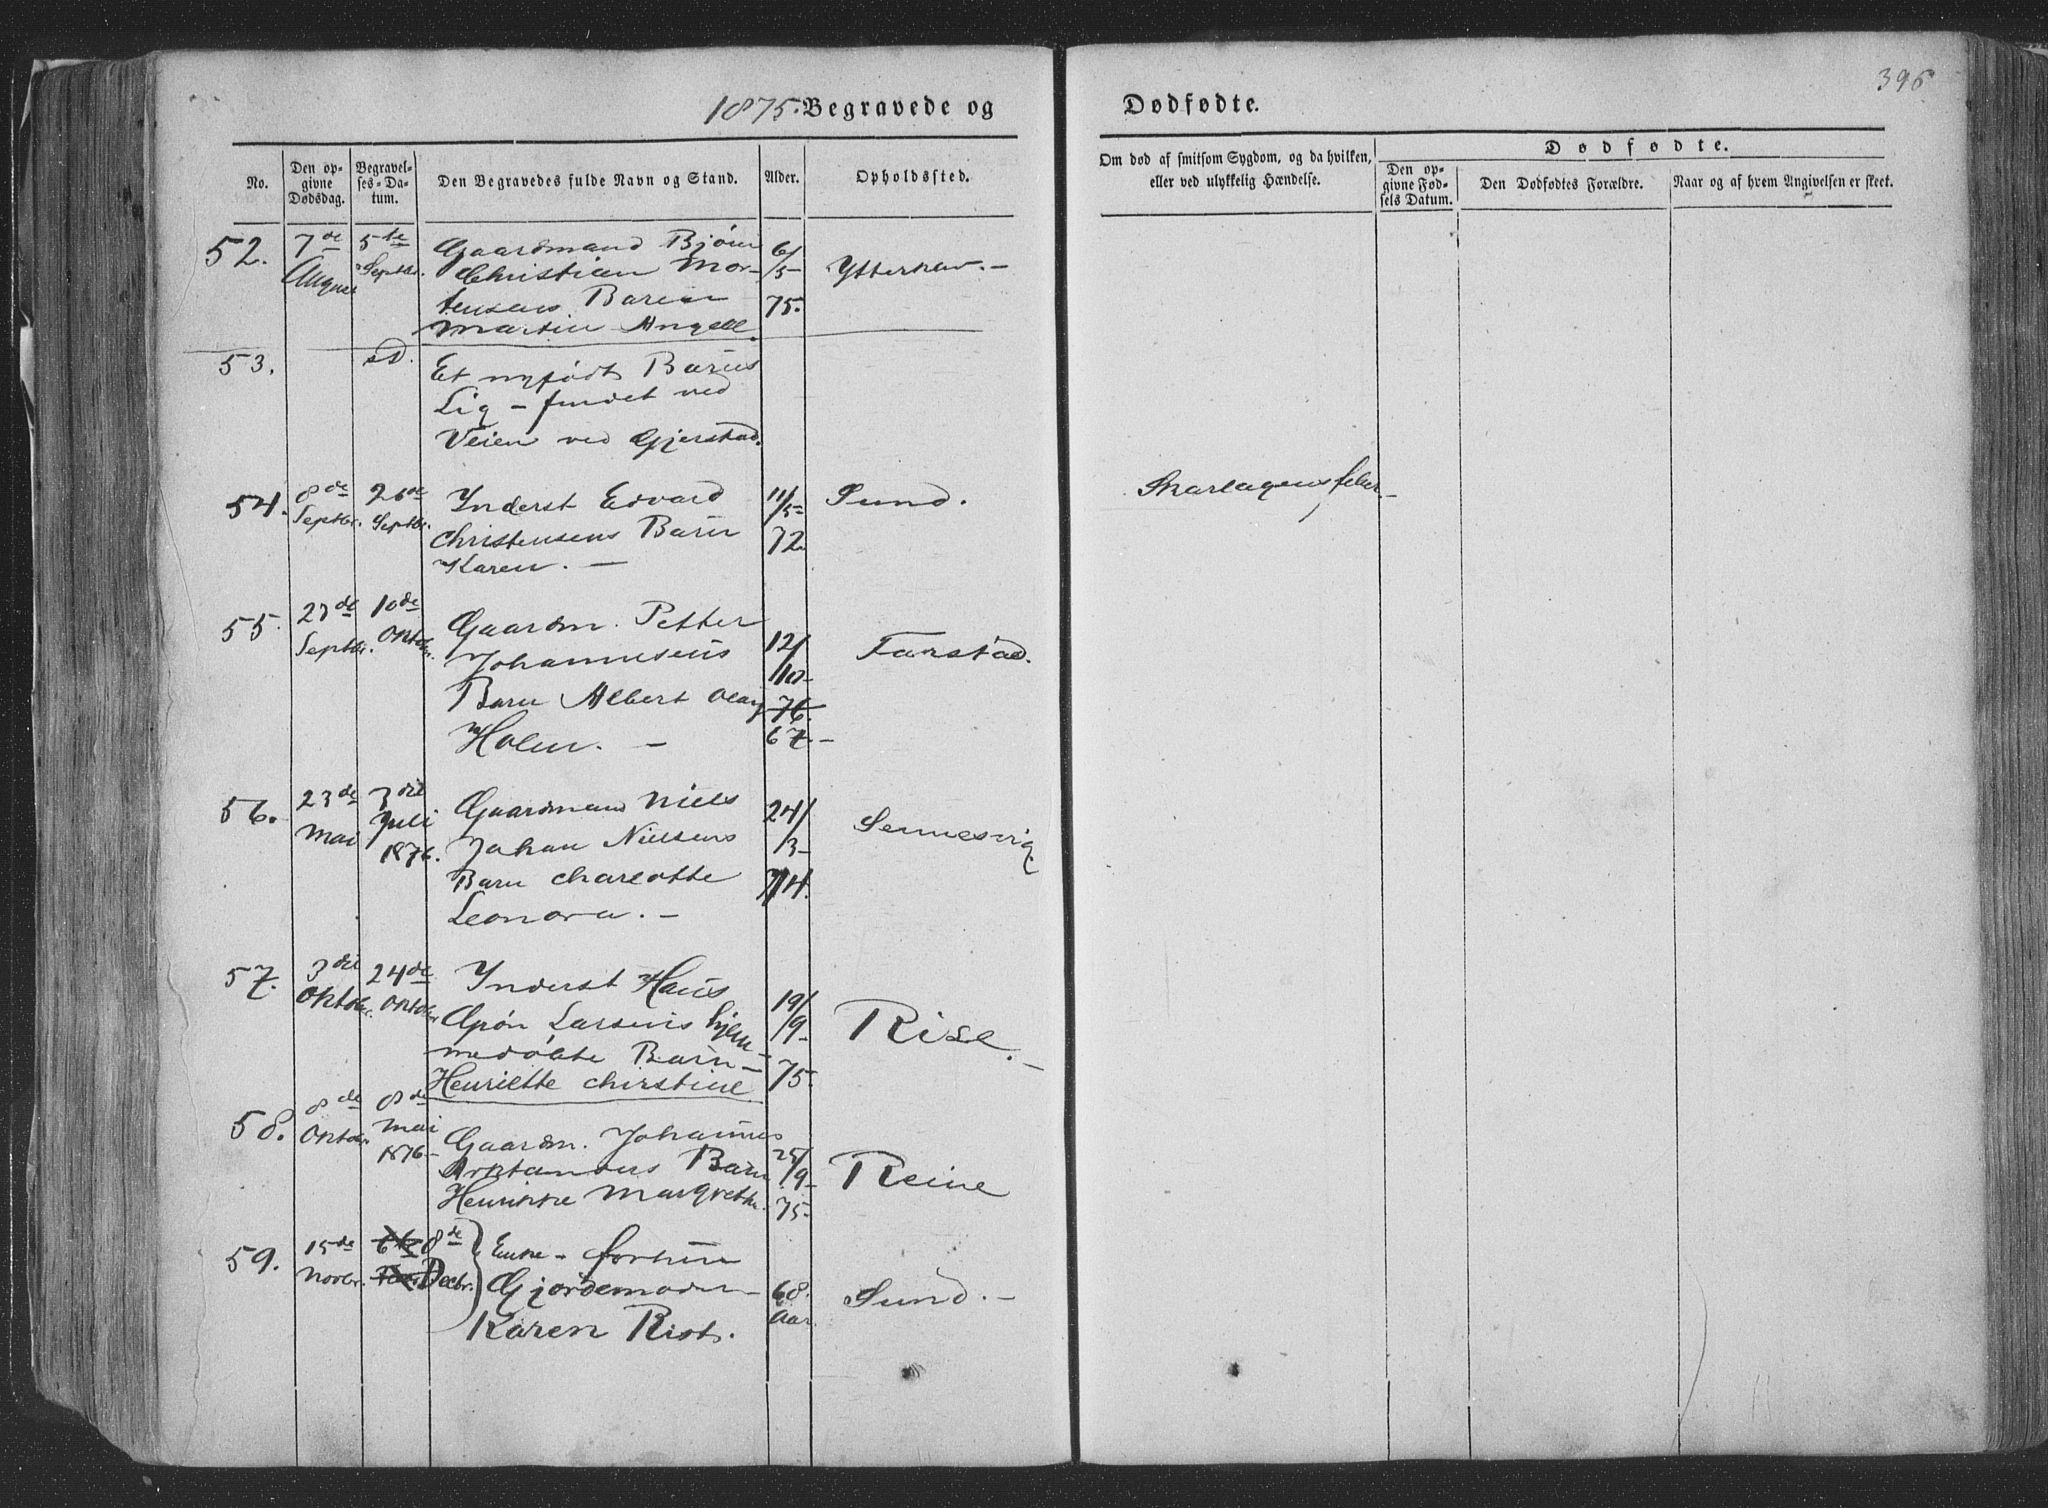 396
1875. Begravede og
Dødfødte.
No.
Den opgivne Dødsdag.
Begravelses-Datum.
Den Begravedes fulde Navn og Stand.
Alder.
Opholdssted.
Om død af smitsom Sygdom, og da hvilken,
eller ved ulykkelig Hændelse.
Dødfødte.
Den opgivne Fødsels Datum.
Den Dødfødtes Forældre.
Naar og af hvem Angivelsen er skeet.
52. 7de August 5te Septbr.
Gaardmand Bjørn
Christian Mor-
tensens Barn
Martin Angell
6/5 75.
53. sd.
Et nyfødt Barns
Lig - fundet ved
Veien ved Gjerstad.
54. 8de Septbr. 26de Septbr.
Inderst Edvard
Christensens Barn
Karen. -
11/5 72
Sund.
Skarlagensfeber
55. 23de Septbr. 10de Oktobr.
Gaardm. Petter
Johannesens
Barn Albert Olay
Holm. -
12/10- 76. 67.-
Farstad.
56. 23de Mai 3die Juli 1876.
Gaardmand Niels
Johan Nielsens
Barn Charlotte
Leonora. -
24/3- 74.
Sennesvig
57. 3die Oktobr. 24de Oktobr.
Inderst Hans
Larsens hjem-
medøbte Barn -
Henriette Christine
19/9- 75.
Rise. -
58. 8de Oktobr. 8de Mai 1876-
Gaardm. Johannes
Arktanders Barn
Henrikke Margrethe.
25/9- 75-
Reine
59. 15de Novbr. 8de Decbr.
Enke - forhen
Gjordemoder -
Karen Rist.
68. Aar
Sund. -